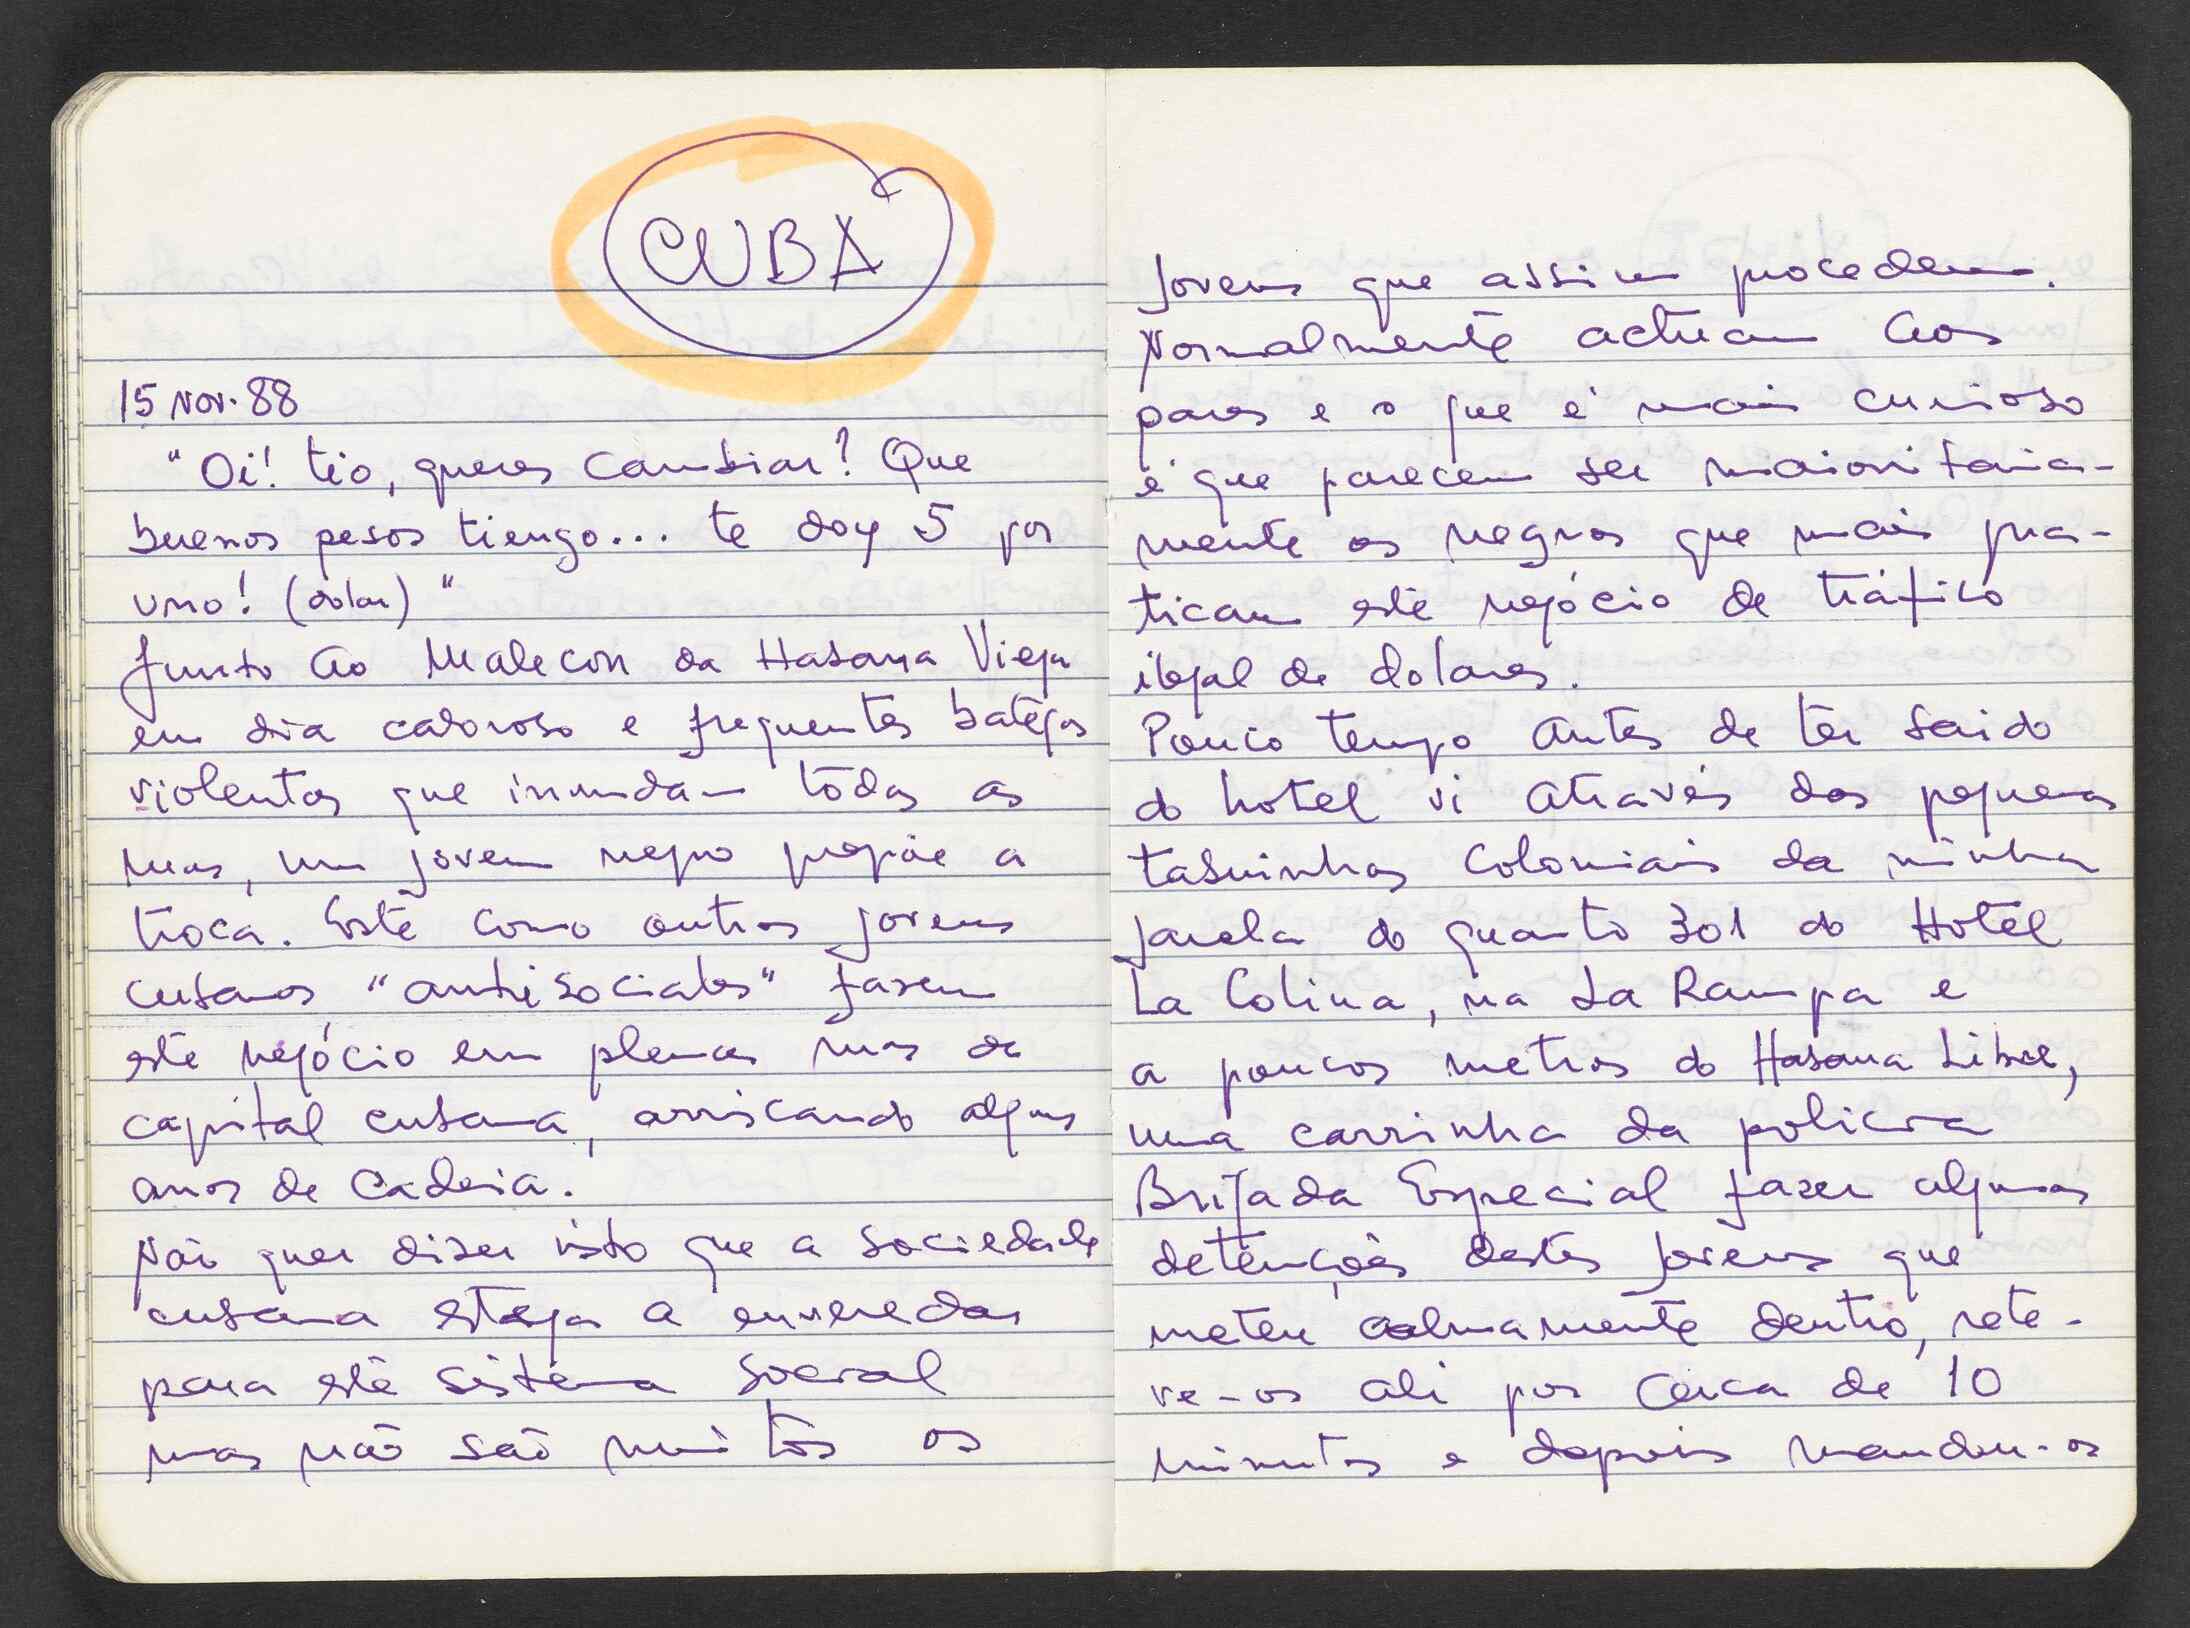 CUBA
15 Nov. 88
"Oi! tio, queres cambiar? Que
buenos pesos tiengo... te doy 5 por
uno! (dolar)"
Junto ao Malecon da Habana Vieja
em dia caloroso e frequentes bátegas
violentas que inundam todas as
ruas, um jovem negro propõe a
troca. Este como outros jovens
cubanos "antisociales" fazem
este negócio em plenas ruas da
capital cubana, arriscando alguns
anos de cadeia.
Não quer dizer isto que a sociedade
cubana esteja a enveredar
para este sistema social
mas não são muitos os
jovens que assim procedem.
Normalmente actuam aos
pares e o que é mais curioso
é que parecem ser maioritaria-
mente os negros que mais pra-
ticam este negócio de tráfico
ilegal de dolares.
Pouco tempo antes de ter saido
do hotel vi através das pequenas
tabuinhas coloniais da minha
janela do quarto 301 do Hotel
La Colina, na La Rampa e
a poucos metros do Habana Libre,
uma carrinha da policia
Brigada Especial fazer algumas
detenções destes jovens que
meteu calmamente dentro, rete-
ve-os ali por cerca de 10
minutos e depois mandou-os